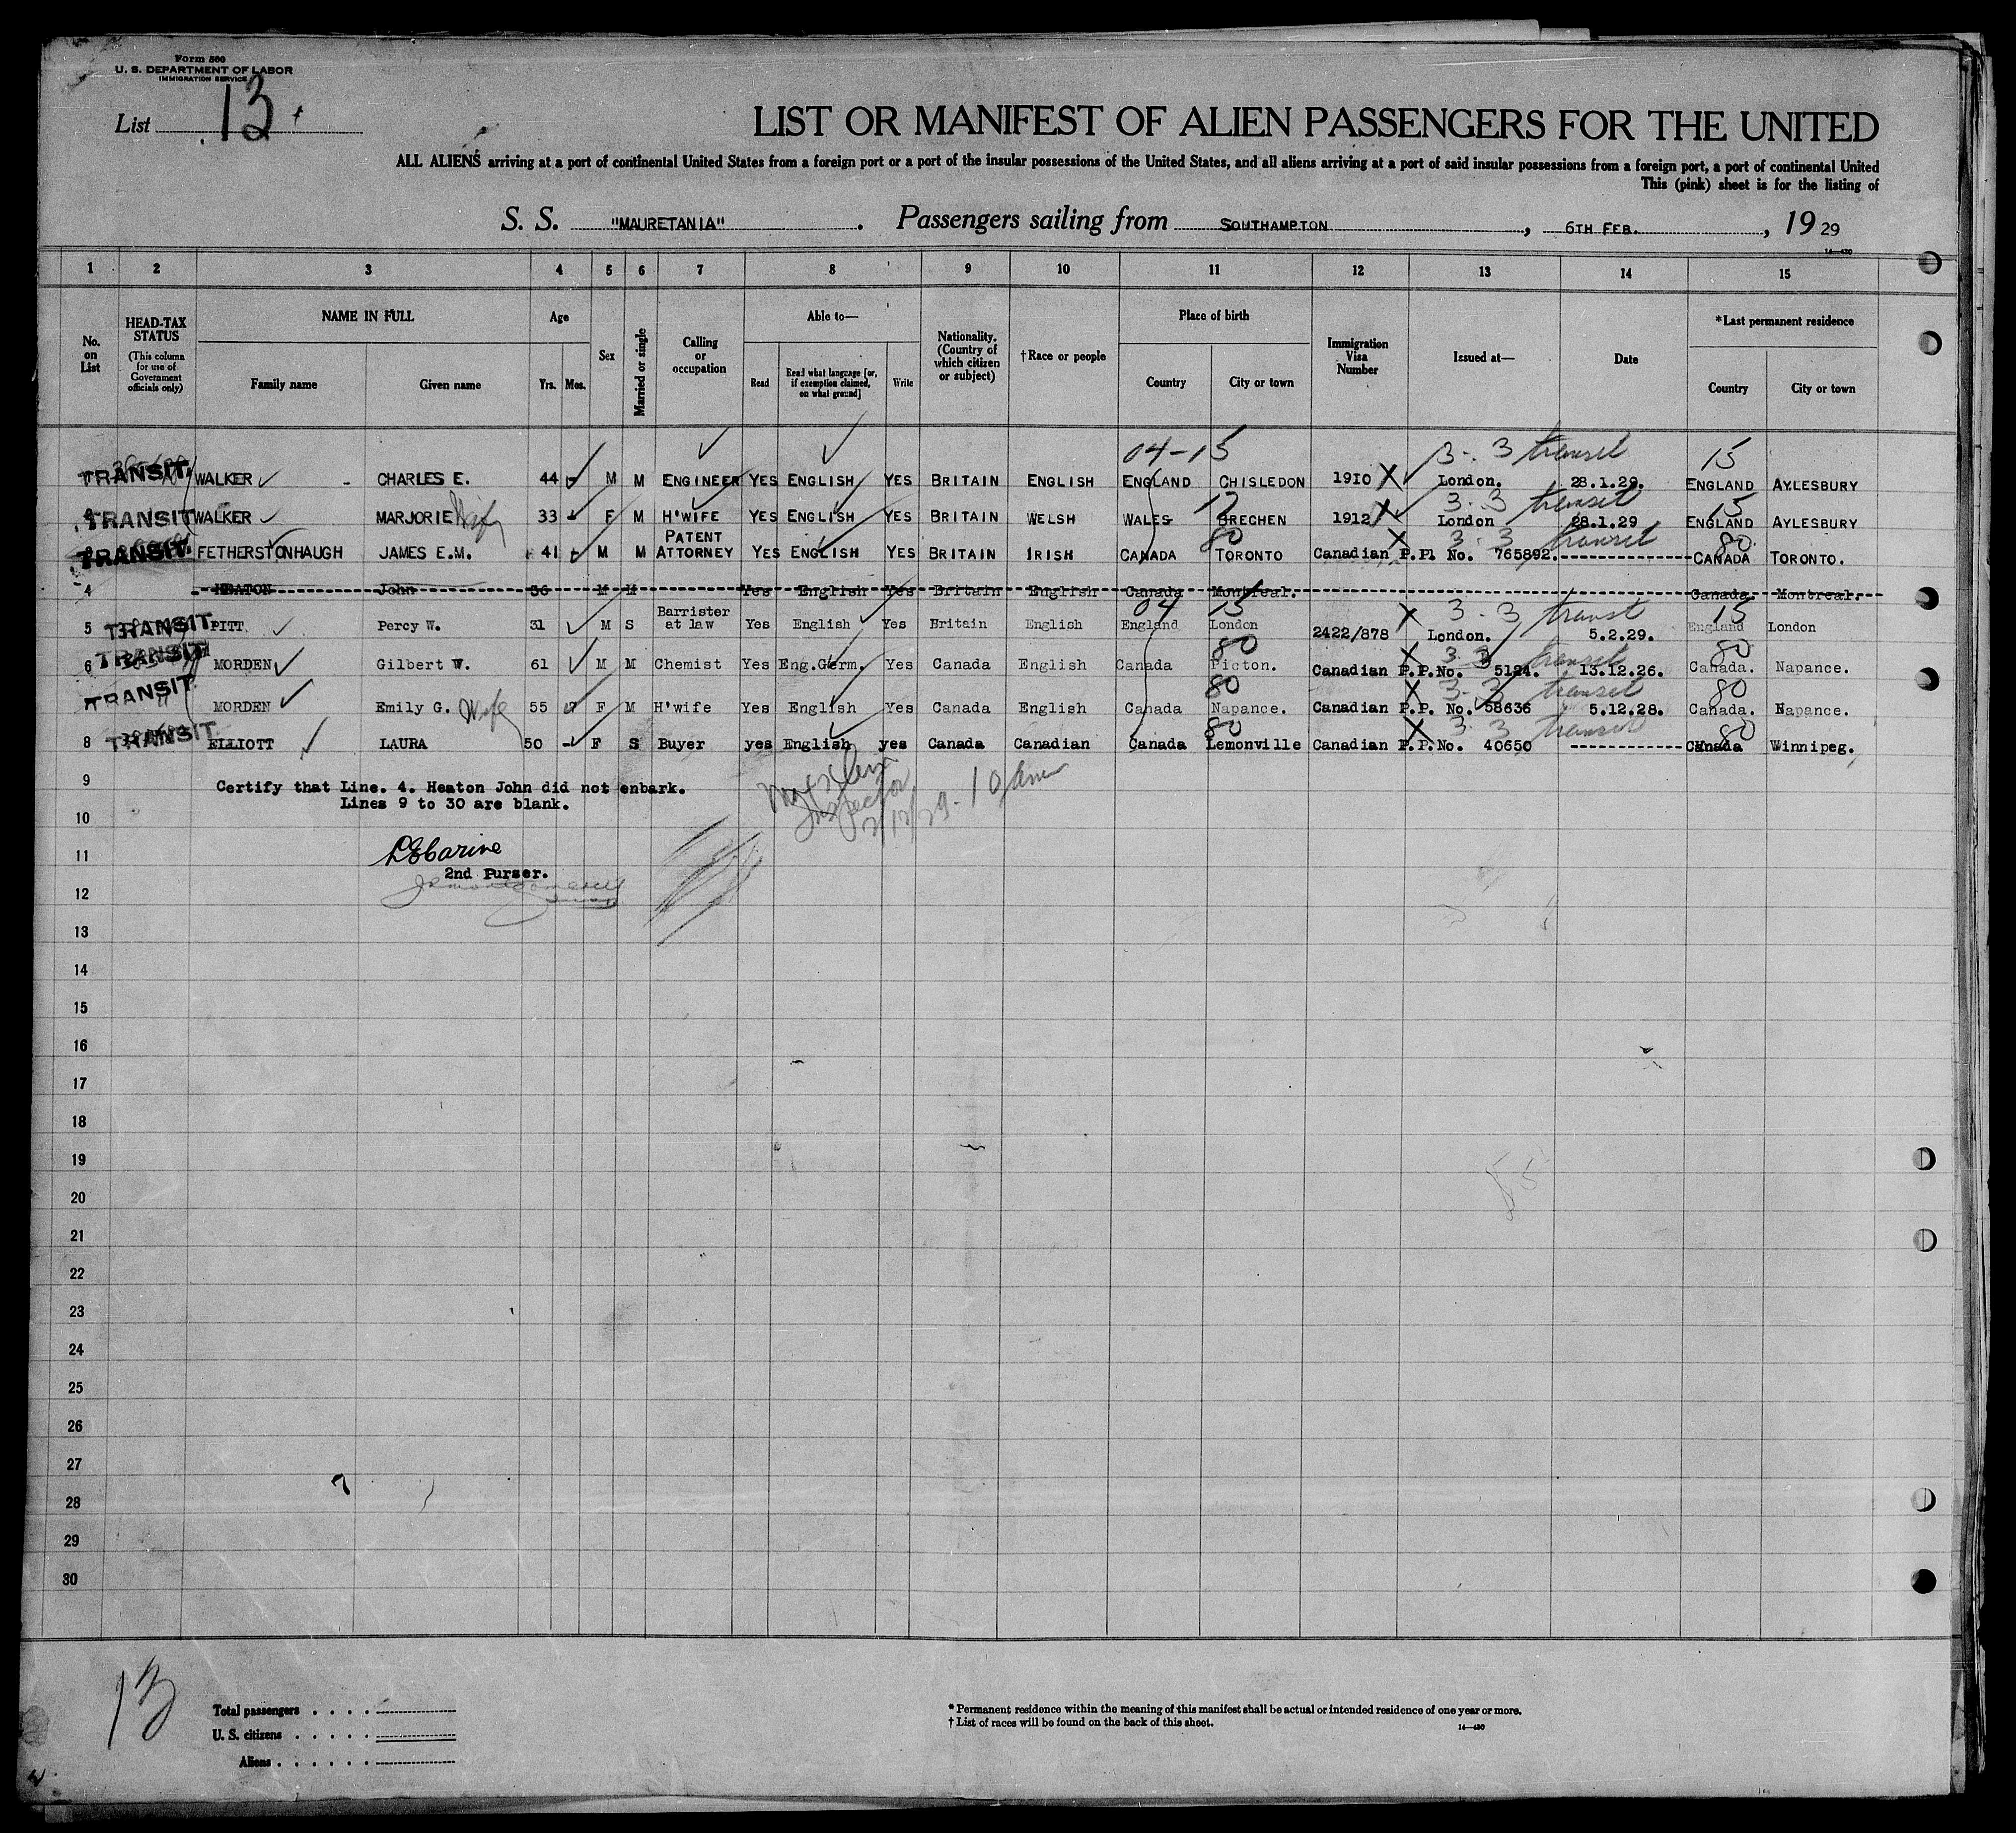 Form 500
U. S. DEPARTMENT OF LABOR
IMMIGRATION SERVICE
List 13
LIST OR MANIFEST OF ALIEN PASSENGERS FOR THE UNITED
ALL ALIENS arriving at a port of continental United States from a foreign port or a port of the insular possessions of the United States, and all aliens arriving at a port of said insular possessions from a foreign port, a port of continental United
This (pink) sheet is for the listing of
S. S. "MAURETANIA". Passengers sailing from SOUTHAMPTON, 6TH FEB., 19 29
14—430
1 2 3 4 5 6 7 8 9 10 11 12 13 14 15
No. on List
HEAD-TAX STATUS (This column for use of Government officials only)
NAME IN FULL
Family name Given name
Age
Yrs. Mos.
Sex
Married or single
Calling or occupation
Able to—
Read Read what language [or, if exemption claimed, on what ground] Write
Nationality. (Country of which citizen or subject)
†Race or people
Place of birth
Country City or town
Immigration Visa Number
Issued at—
Date
*Last permanent residence
Country City or town
04-15 3-3 transit 15
TRANSIT. WALKER CHARLES E. 44 M M ENGINEER YES ENGLISH YES BRITAIN ENGLISH ENGLAND CHISLEDON 1910 X London. 28.1.29. ENGLAND AYLESBURY
17 3-3 transit 15
TRANSIT WALKER MARJORIE Wife 33 F M H'WIFE YES ENGLISH YES BRITAIN WELSH WALES BRECHEN 1912 X London 28.1.29 ENGLAND AYLESBURY
80 X 3-3 transit 80
TRANSIT. FETHERSTONHAUGH JAMES E.M. 41 M M PATENT ATTORNEY YES ENGLISH YES BRITAIN IRISH CANADA TORONTO Canadian P.P. No. 765892. CANADA TORONTO.
4 HEATON John 36 M M Yes English Yes Britain English Canada Montreal. Canada Montreal.
04 15 X 3-3 transit 15
5 TRANSIT. PITT Percy W. 31 M S Barrister at law Yes English Yes Britain English England London 2422/878 London. 5.2.29. England London
80 X 3-3 transit 80
6 TRANSIT MORDEN Gilbert W. 61 M M Chemist Yes Eng.Germ. Yes Canada English Canada Picton. Canadian P.P.No. 5124. 13.12.26. Canada. Napance.
80 X 3-3 transit 80
TRANSIT. MORDEN Emily G. Wife 55 F M H'wife Yes English Yes Canada English Canada Napance. Canadian P.P. No. 58636 5.12.28. Canada. Napance.
80 X 3 3 transit 80
8 TRANSIT. ELLIOTT LAURA 50 F S Buyer yes English yes Canada Canadian Canada Lemonville Canadian P.P.No. 40650 Canada Winnipeg.
9 Certify that Line. 4. Heaton John did not enbark.
Lines 9 to 30 are blank.
Inspector
10
11
2nd Purser.
12
13
14
15
16
17
18
19
20
21
22
23
24
25
26
27
28
29
30
13
Total passengers
U. S. citizens
Aliens
* Permanent residence within the meaning of this manifest shall be actual or intended residence of one year or more.
† List of races will be found on the back of this sheet.
14—430